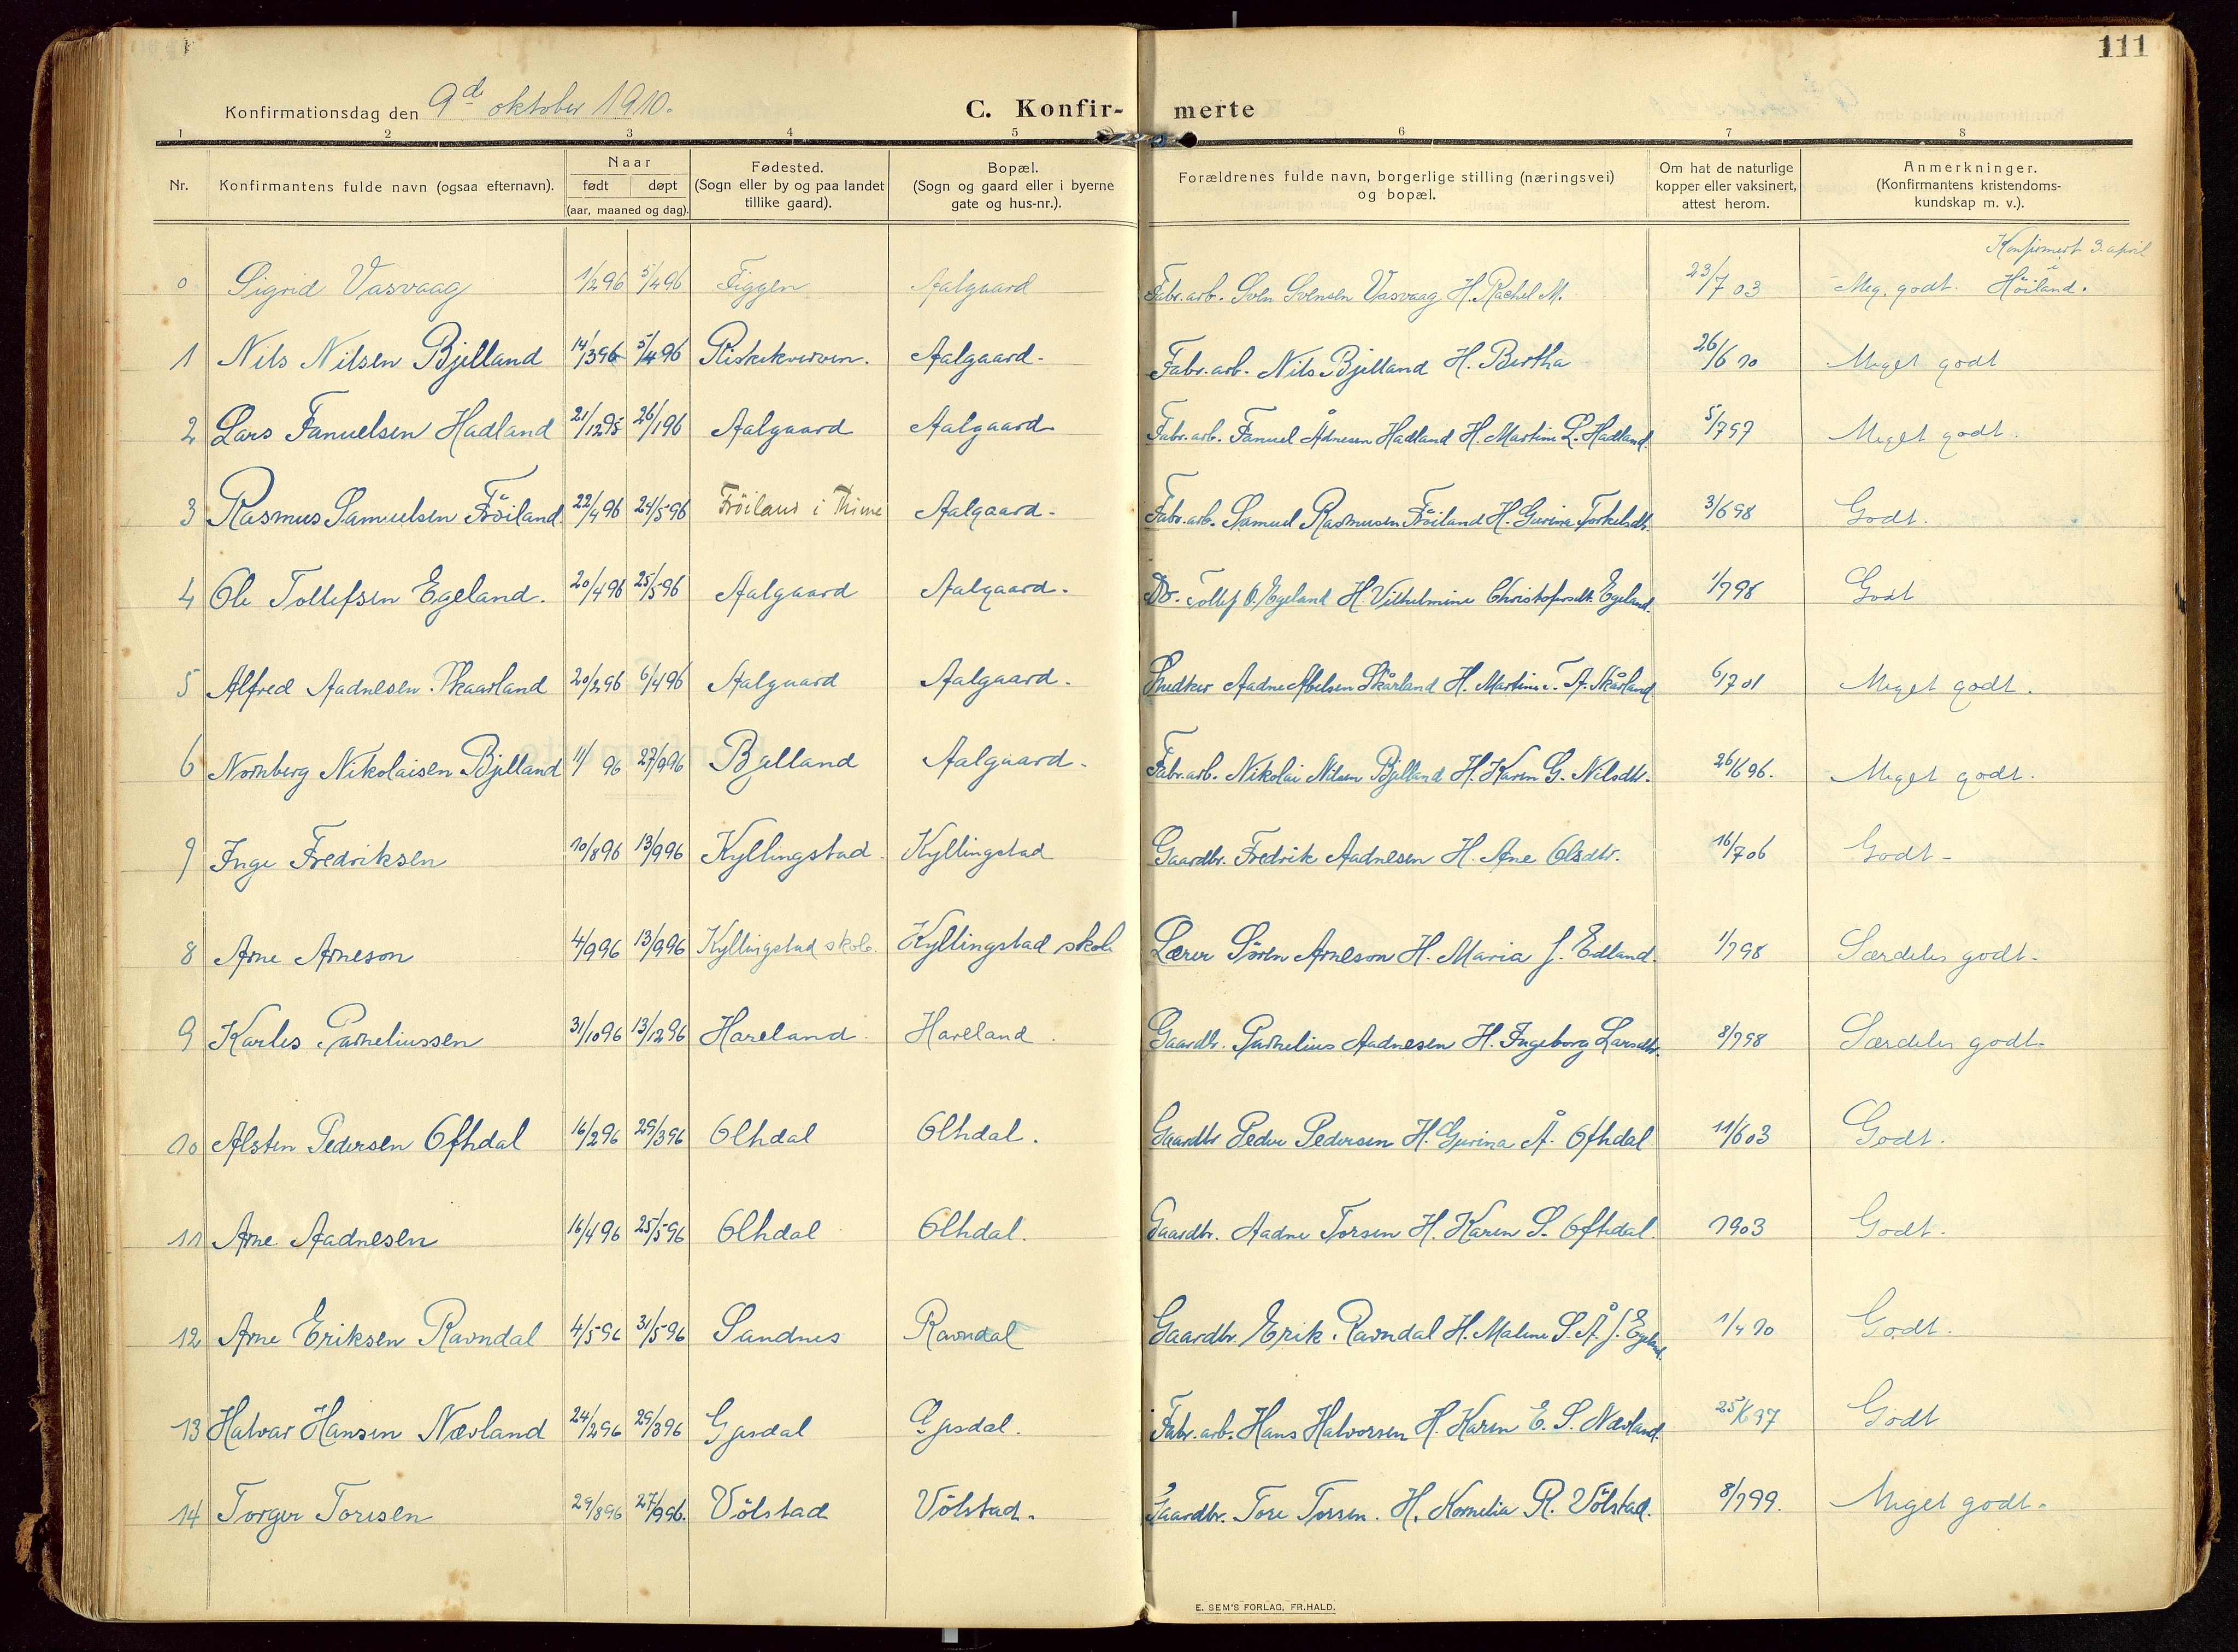 111
Konfirmationsdag den 9de oktober 1910. C. Konfir- merte
1 2 3 4 5 6 7 8
Nr. Konfirmantens fulde navn (ogsaa efternavn). Naar født døpt (aar, maaned og dag). Fødested. (Sogn eller by og paa landet tillike gaard). Bopæl. (Sogn og gaard eller i byerne gate og hus-nr.). Forældrenes fulde navn, borgerlige stilling (næringsvei) og bopæl. Om hat de naturlige kopper eller vaksinert, attest herom. Anmerkninger. (Konfirmantens kristendoms- kundskap m. v.).
0 Sigrid Vasvaag 1/2 96 5/4 96 Figgen Aalgaard Fabr. arb. Sven Svensen Vasvaag H. Rachel M. 23/7 03 Meg. godt. Konfirmert 3. april i Höiland.
1 Nils Nilsen Bjelland 14/3 96 5/4 96 Riskekverven. Aalgaard. Fabr. arb. Nils Bjelland H. Bertha 26/6 10 Meget godt
2 Lars Fanuelsen Hadland 21/12 95 26/1 96 Aalgaard Aalgaard Fabr. arb. Fanuel Ådnesen Hadland H. Martine L. Hadland. 5/7 97 Meget godt.
3 Rasmus Samuelsen Fröiland. 22/4 96 24/5 96 Fröiland i Thime Aalgaard. Fabr. arb. Samuel Rasmusen Fröiland H. Gurina Torkelsdt. 3/6 98 Godt.
4 Ole Tollefsen Egeland. 20/4 96 25/5 96 Aalgaard Aalgaard. Do. Tollef O. Egeland H. Vilhelmine Christofersdt. Egeland. 1/7 98 Godt
5 Alfred Aadnesen Skaarland 20/2 96 6/4 96 Aalgaard Aalgaard. Snedker Aadne Abelsen Skårland H. Martine T. A. Skårland 6/7 01 Meget godt.
6 Nornberg Nikolaisen Bjelland 11/ 96 27/9 96 Bjelland Aalgaard. Fabr. arb. Nikolai Nilsen Bjelland H. Karen G. Nilsdtr. 26/6 96. Meget godt.
7 Inge Fredriksen 10/8 96 13/9 96 Kyllingstad. Kyllingstad Gaardbr. Fredrik Aadnesen H. Ane Olsdtr. 16/7 06 Godt.
8 Arne Arneson 4/9 96 13/9 96 Kyllingstad skole. Kyllingstad skole Lærer Sören Arneson H. Maria f. Edland. 1/7 98 Særdeles godt.
9 Karles Parneliussen 31/10 96 13/12 96 Hareland. Hareland. Gaardbr. Parnelius Aadnesen H. Ingeborg Larsdtr. 8/7 98 Særdeles godt.
10 Alsten Pedersen Ofthdal 16/2 96 29/3 96 Olhdal Olhdal. Gaardbr Peder Pedersen H. Gurina Å. Ofthdal 11/6 03 Godt.
11 Arne Aadnesen 16/4 96 25/5 96 Olhdal Olhdal. Gaardbr. Aadne Torsen H. Karen S. Ofthdal. 1903 Godt.
12 Arne Eriksen Ravndal 4/5 96 31/5 96 Sandnes Ravndal Gaardbr. Erik Ravndal H. Malene S. Å. f. Egeland. 1/4 10 Godt.
13 Halvar Hansen Nævland 24/2 96 29/3 96 Gjesdal Gjesdal. Fabr. arb. Hans Halvorsen H. Karen E. S. Nævland. 25/6 97 Godt
14 Torger Toresen 29/8 96 27/9 96. Völstad Völstad. Gaardbr. Tore Torsen. H. Kornelia R. Völstad. 8/7 99. Meget godt.
E. SEM'S FORLAG, FR.HALD.